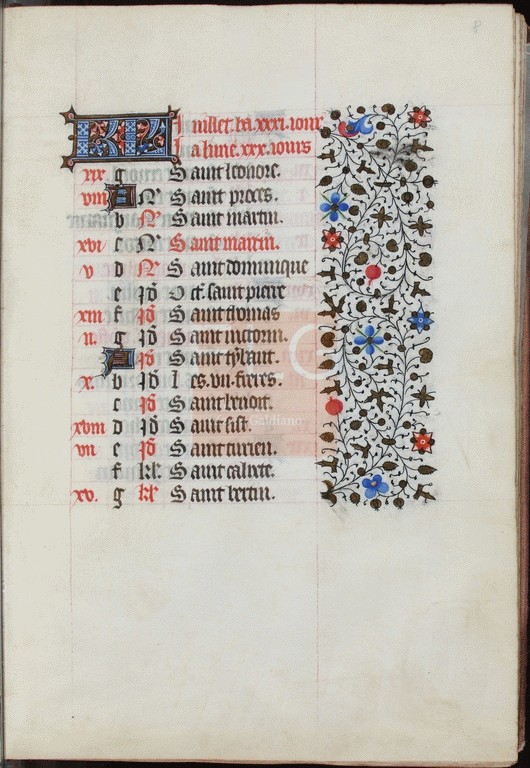 8
KL Juillet. ha. xxxi. iours
La lune. xxx. iours
xix g Saint leonore.
viii A N Saint proces.
b N Saint martin.
xvi c N Saint martin.
v d N Saint dominique
e id Oct. saint pierre
xiii f id Saint thomas
ii. g id Saint
A id Saint
x. b id Les. vii. freres.
c id Saint benoit.
xviii d id Saint sist.
vii e id Saint turien.
f kl. Saint calixte.
xv. g kl Saint bertin.
Galdiano